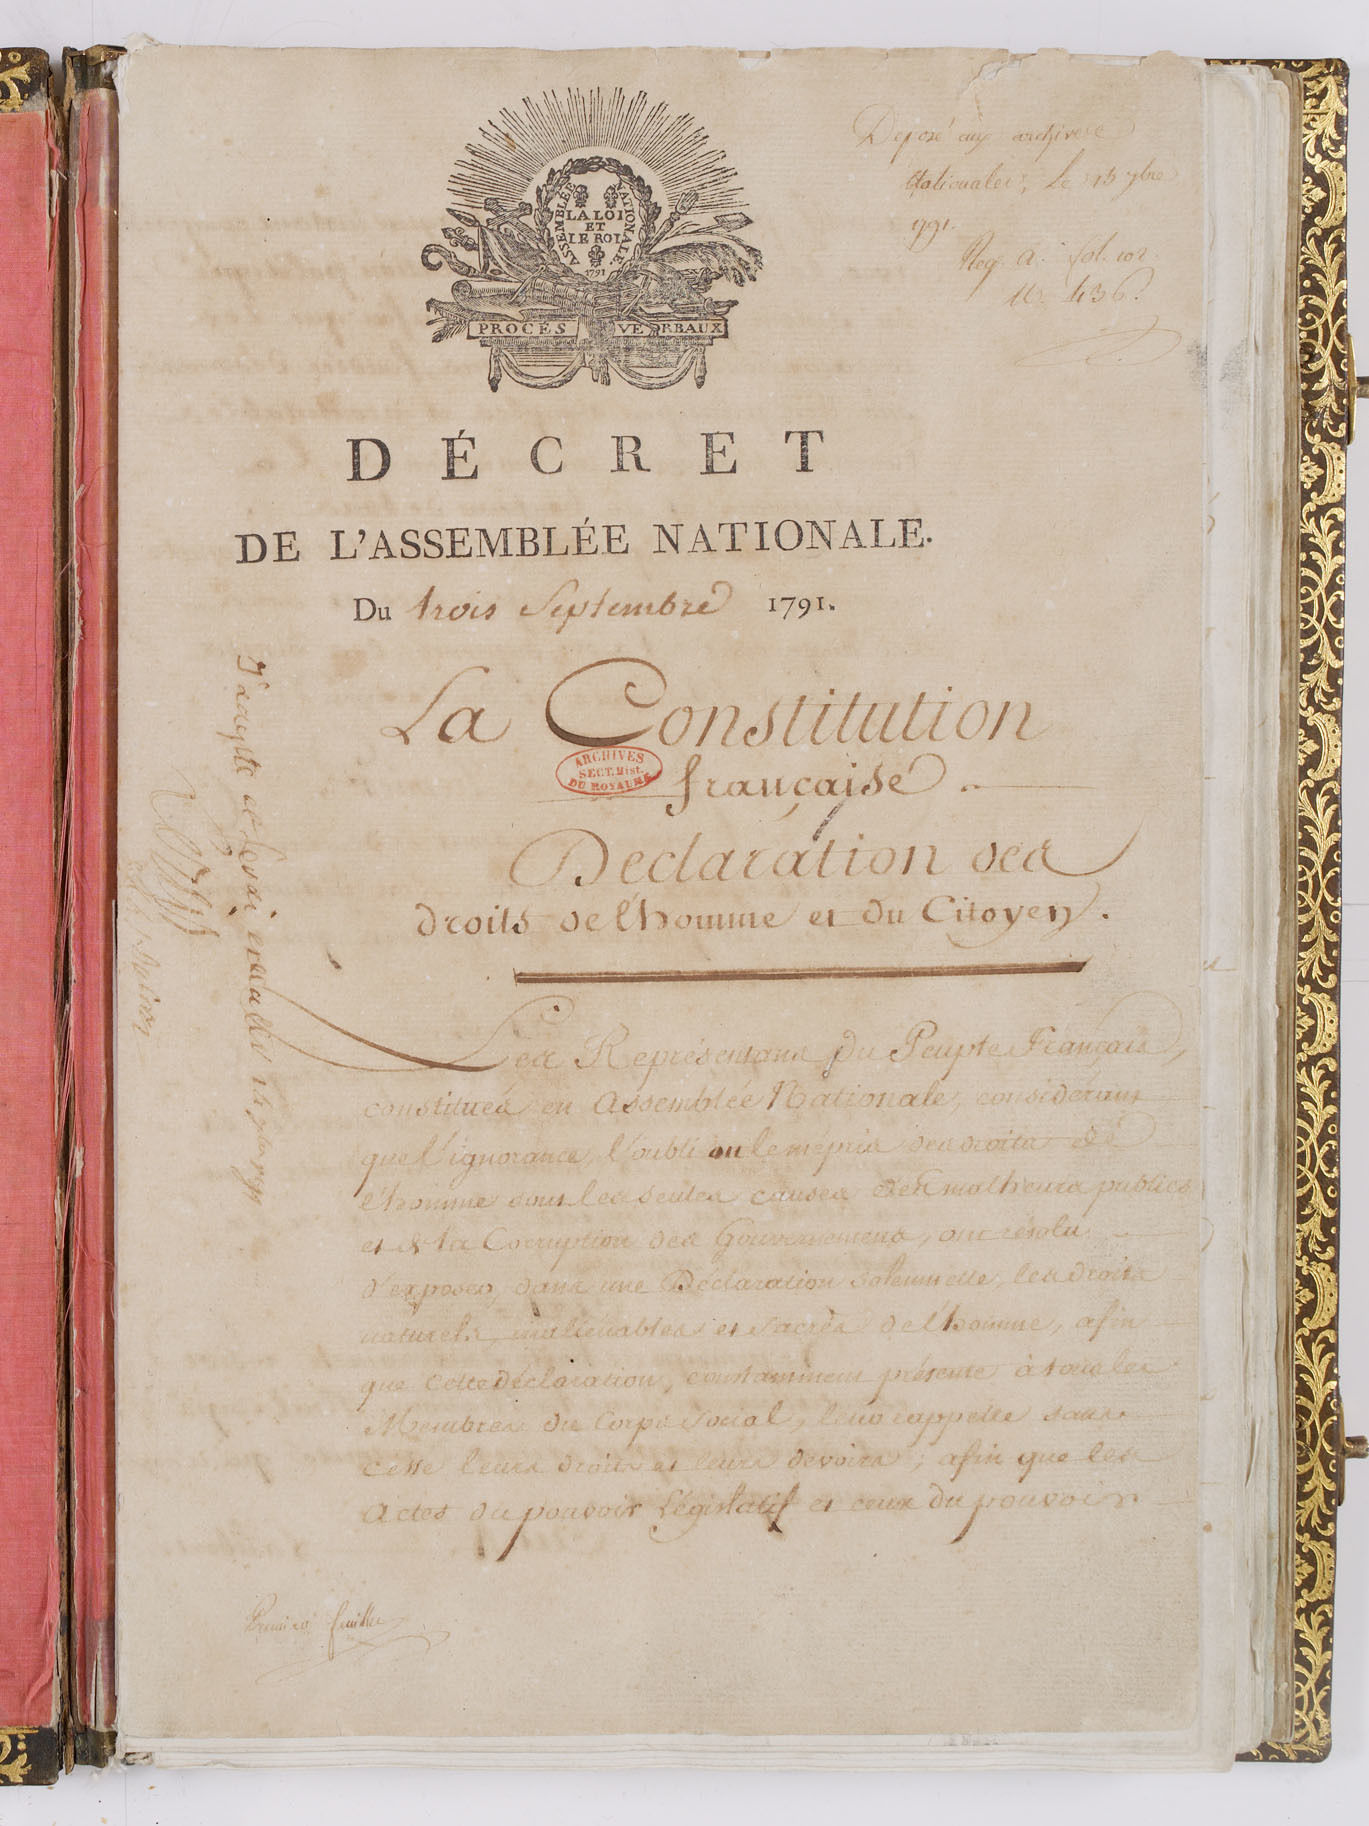 ASSEMBLÉE NATIONALE.
LA LOI
ET
LE ROI
1791
PROCÈS VERBAUX
Deposé aux archives
Nationales, Le 15 7bre
1791.
Reg. A. fol. 102.
N. 436.
DÉCRET
DE L'ASSEMBLÉE NATIONALE.
Du trois Septembre 1791.
La Constitution
française.
ARCHIVES
SECT. Hist.
DU ROYAUME
Déclaration des
droits de l'homme et du Citoyen.
Les Représentans du Peuple Français,
constitués en Assemblée Nationale, considérant
que l'ignorance, l'oubli ou le mépris des droits de
l'homme sont les seules causes des malheurs publics
et de la Corruption des Gouvernemens, ont résolu
d'exposer, dans une Déclaration solennelle, les droits
naturels, inalienables et sacrés de l'homme, afin
que cette déclaration, constamment présente à tous les
Membres du Corps social, leur rappelle sans
cesse leurs droits et leurs devoirs; afin que les
Actes du pouvoir Législatif et ceux du pouvoir
J'accepte et ferai executer 14 7bre 1791
Louis
Premier feuillet